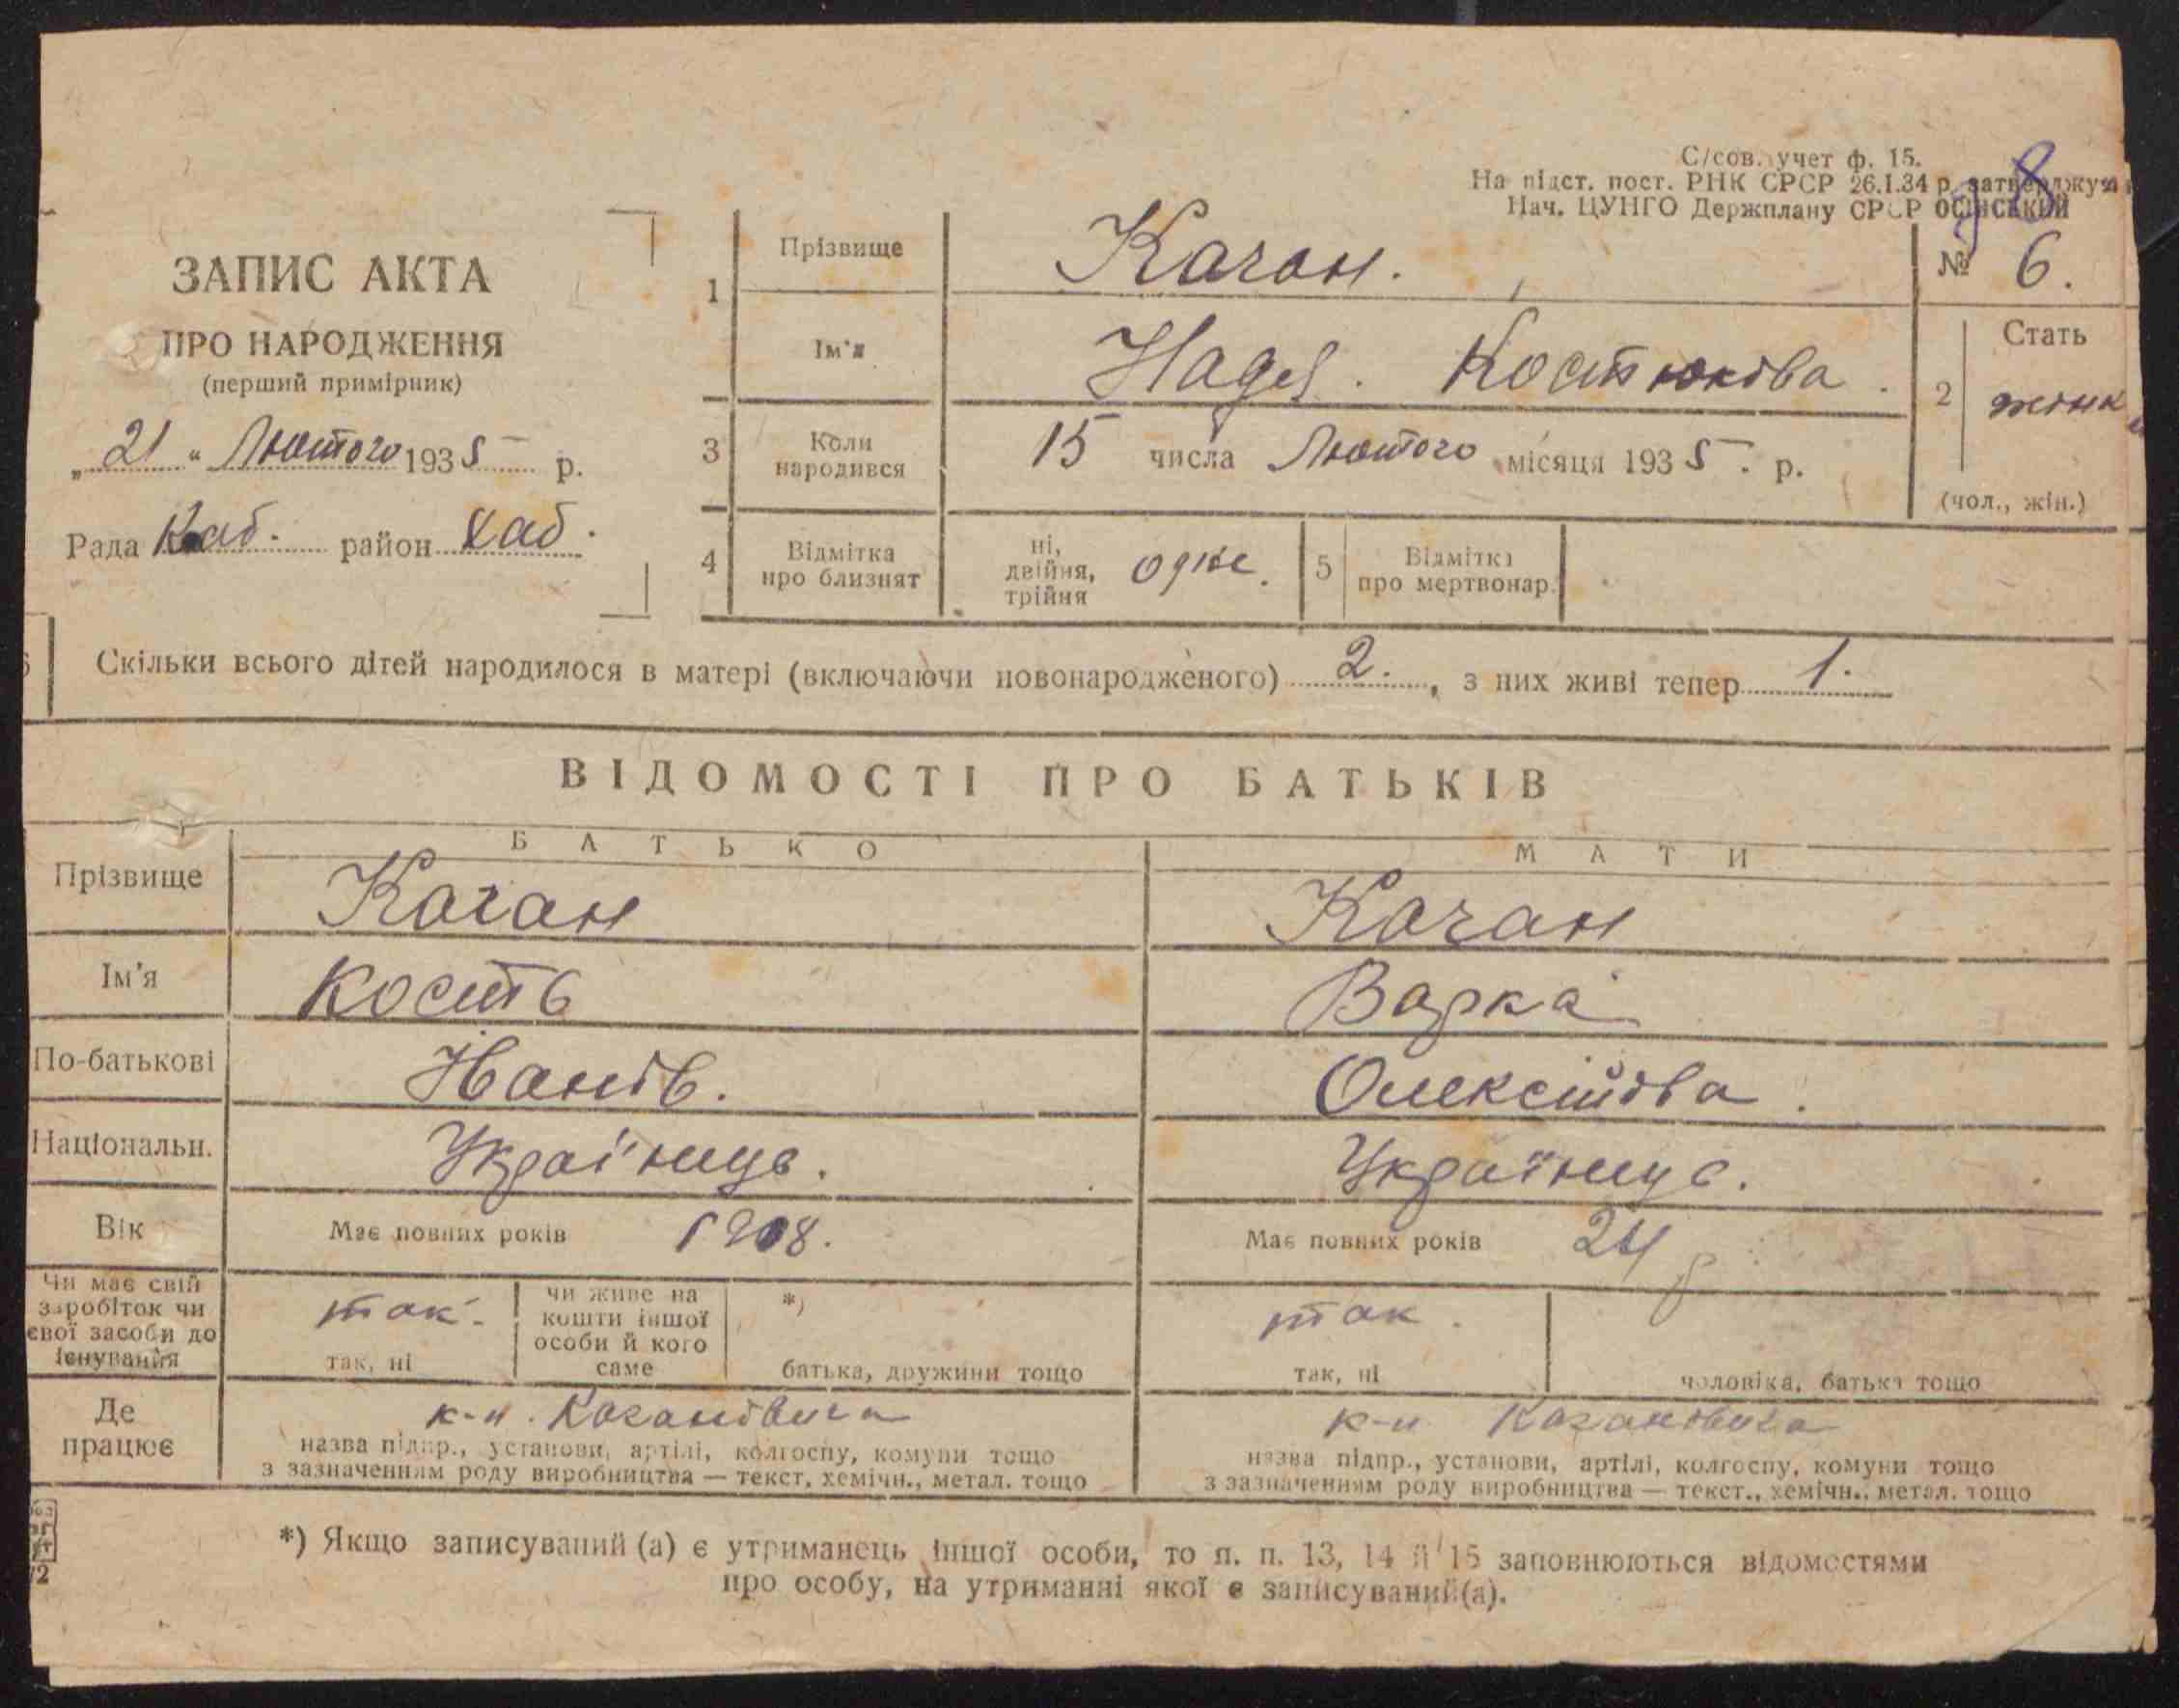 С/сов. учет ф. 15.
На підст. пост. РНК СРСР 26.I.34 р. затверджую
Нач. ЦУНГО Держплану СРСР ОСІНСЬКИЙ
98
ЗАПИС АКТА
ПРО НАРОДЖЕННЯ
(перший примірник)
„21“ Лютого 1935 р.
Рада Хаб. район Хаб.
1 Прізвище Качан.
№ 6.
Ім'я Надя. Костюкова.
2 Стать жінк
(чол., жін.)
3 Коли народився 15 числа Лютого місяця 1935. р.
4 Відмітка про близнят ні, двійня, трійня одне.
5 Відмітка про мертвонар.
Скільки всього дітей народилося в матері (включаючи новонародженого) 2., з них живі тепер 1.
ВІДОМОСТІ ПРО БАТЬКІВ
БАТЬКО МАТИ
Прізвище Качан Качан
Ім'я Кость Варка
По-батькові Іванів. Олексіївва.
Національн. Українць. Українць.
Вік Має повних років 1908. Має повних років 24
Чи має свій заробіток чи свої засоби до існування так. так, ні
чи живе на кошти іншої особи й кого саме *) батька, дружини тощо
так. так, ні чоловіка, батька тощо
Де працює к-п. Кагановича к-п Кагановича
назва підпр., установи, артілі, колгоспу, комуни тощо
з зазначенням роду виробництва — текст, хемічн., метал. тощо
назва підпр., установи, артілі, колгоспу, комуни тощо
з зазначенням роду виробництва — текст., хемічн., метал. тощо
*) Якщо записуваний (а) є утриманець іншої особи, то п. п. 13, 14 й 15 заповнюються відомостями
про особу, на утриманні якої є записуваний(а).